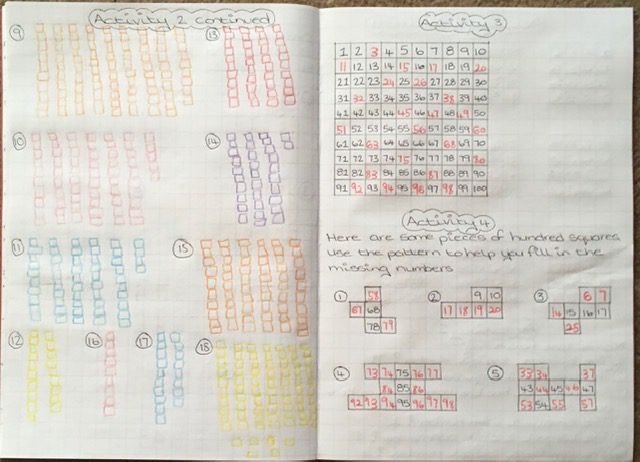 Activity 2 continued
9 13
10 14
11 15
12 16 17 18
Activity 3
1 2 3 4 5 6 7 8 9 10
11 12 13 14 15 16 17 18 19 20
21 22 23 24 25 26 27 28 29 30
31 32 33 34 35 36 37 38 39 40
41 42 43 44 45 46 47 48 49 50
51 52 53 54 55 56 57 58 59 60
61 62 63 64 65 66 67 68 69 70
71 72 73 74 75 76 77 78 79 80
81 82 83 84 85 86 87 88 89 90
91 92 93 94 95 96 97 98 99 100
Activity 4
Here are some pieces of hundred squares
use the pattern to help you fill in the
missing numbers
1 58
67 68
78 79
2 9 10
17 18 19 20
3 6 7
14 15 16 17
25
4 73 74 75 76 77
84 85 86
92 93 94 95 96 97 98
5 33 34 37
43 44 45 46 47
53 54 55 57